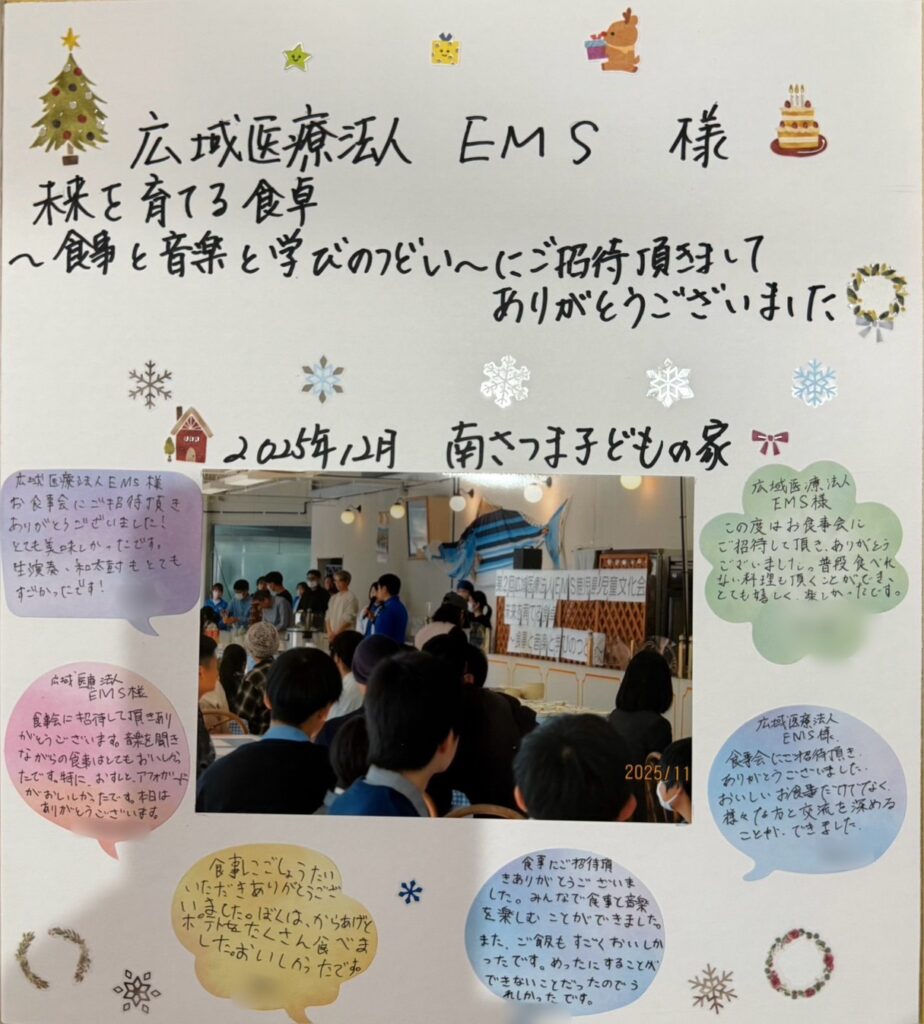 広域医療法人 EMS 様
未来を育てる食卓
~食事と音楽と学びのつどい~にご招待頂きまして
ありがとうございました
2025年12月 南さつま子どもの家
広域医療法人EMS様
お食事会にご招待頂き
ありがとうございました!
とても美味しかったです。
生演奏、和太鼓もとても
すごかったです!
広域医療法人
EMS様
この度はお食事会に
ご招待して頂き、ありがとう
ございました。普段食べれ
ない料理も頂くことができ、
とても嬉しく、楽しかったです。
第2回広域医療法人EMS鹿児島児童文化会
未来を育てる食卓
~食事と音楽と学びのつどい
2025/11
広域医療法人
EMS様
食事会に招待して頂きあり
がとうございます。音楽を聞き
ながらの食事はとてもおいしかっ
たです。特に、おすしと、アフォガード
がおいしかったです。本日は
ありがとうございます。
広域医療法人
EMS様
食事会にご招待頂き、
ありがとうございました。
おいしいお食事だけでなく、
様々な方と交流を深める
ことが、できました。
食事にごしょうたい
いただきありがとうござ
いました。ぼくは、からあげと
ポテトをたくさん食べま
した。おいしかったです。
食事にご招待頂
きありがとうございま
した。みんなで食事と音楽
を楽しむことができました。
また、ご飯もすごくおいしか
ったです。めったにすることが
できないことだったのでう
れしかったです。